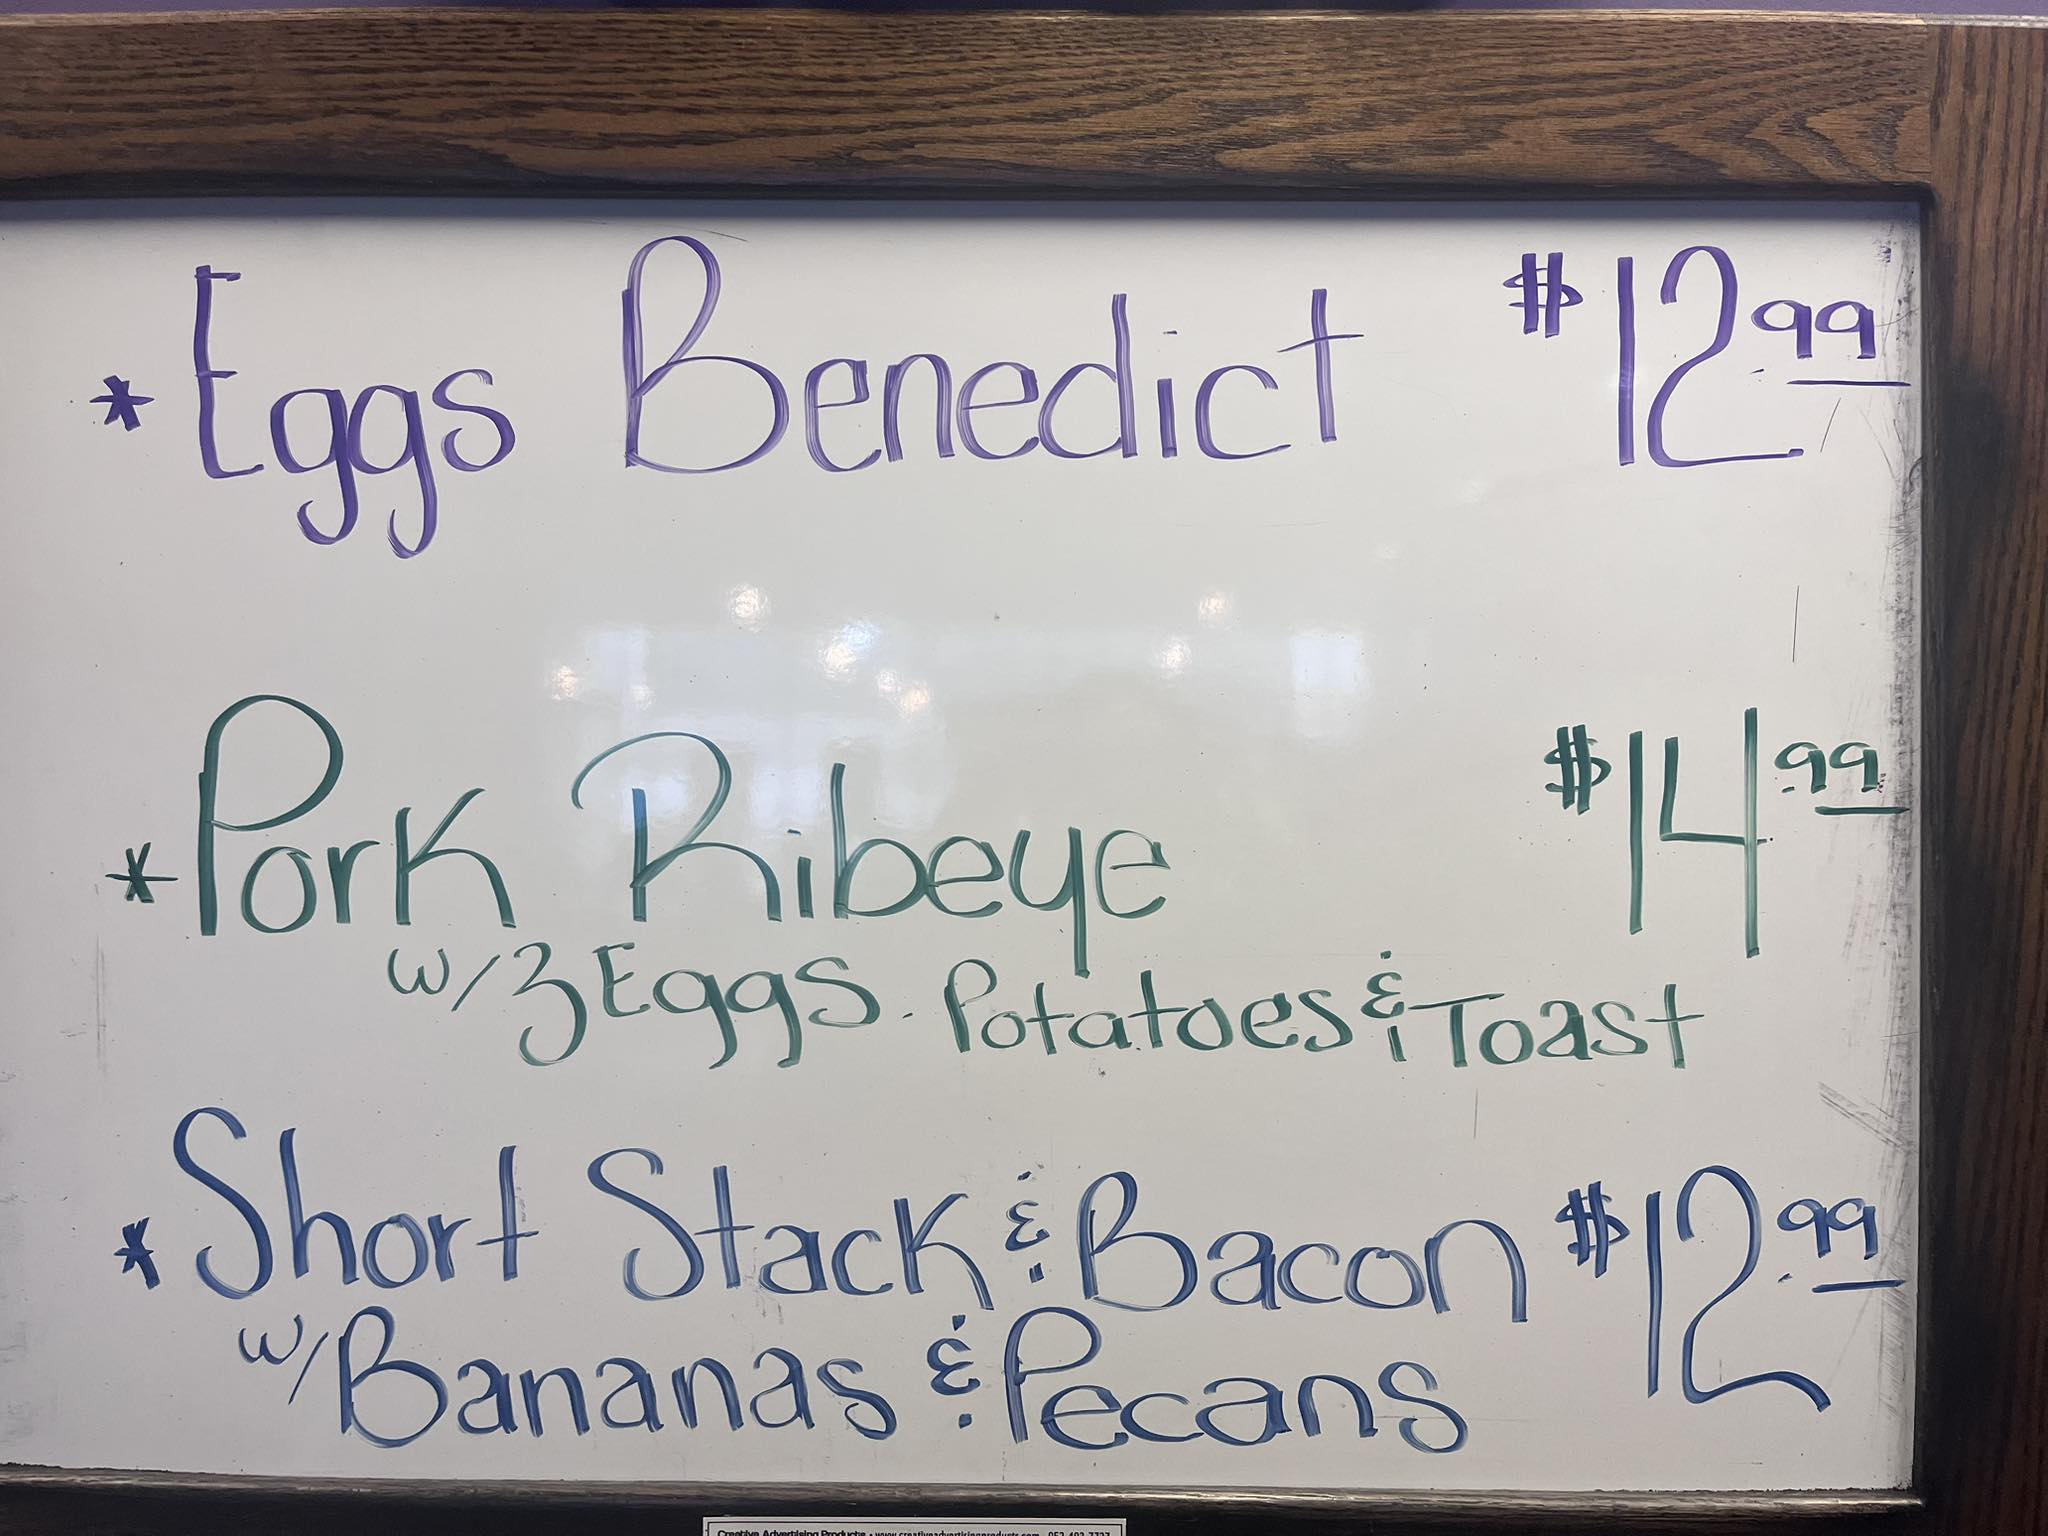 * Eggs Benedict $12.99
* Pork Ribeye $14.99
w/ 3 Eggs Potatoes & Toast
* Short Stack & Bacon $12.99
w/ Bananas & Pecans
Creative Advertising Products • www.creativeadvertisingproducts.com